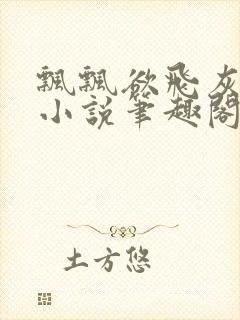 飄飄欲飛灰
小說筆趣閣
土方悠